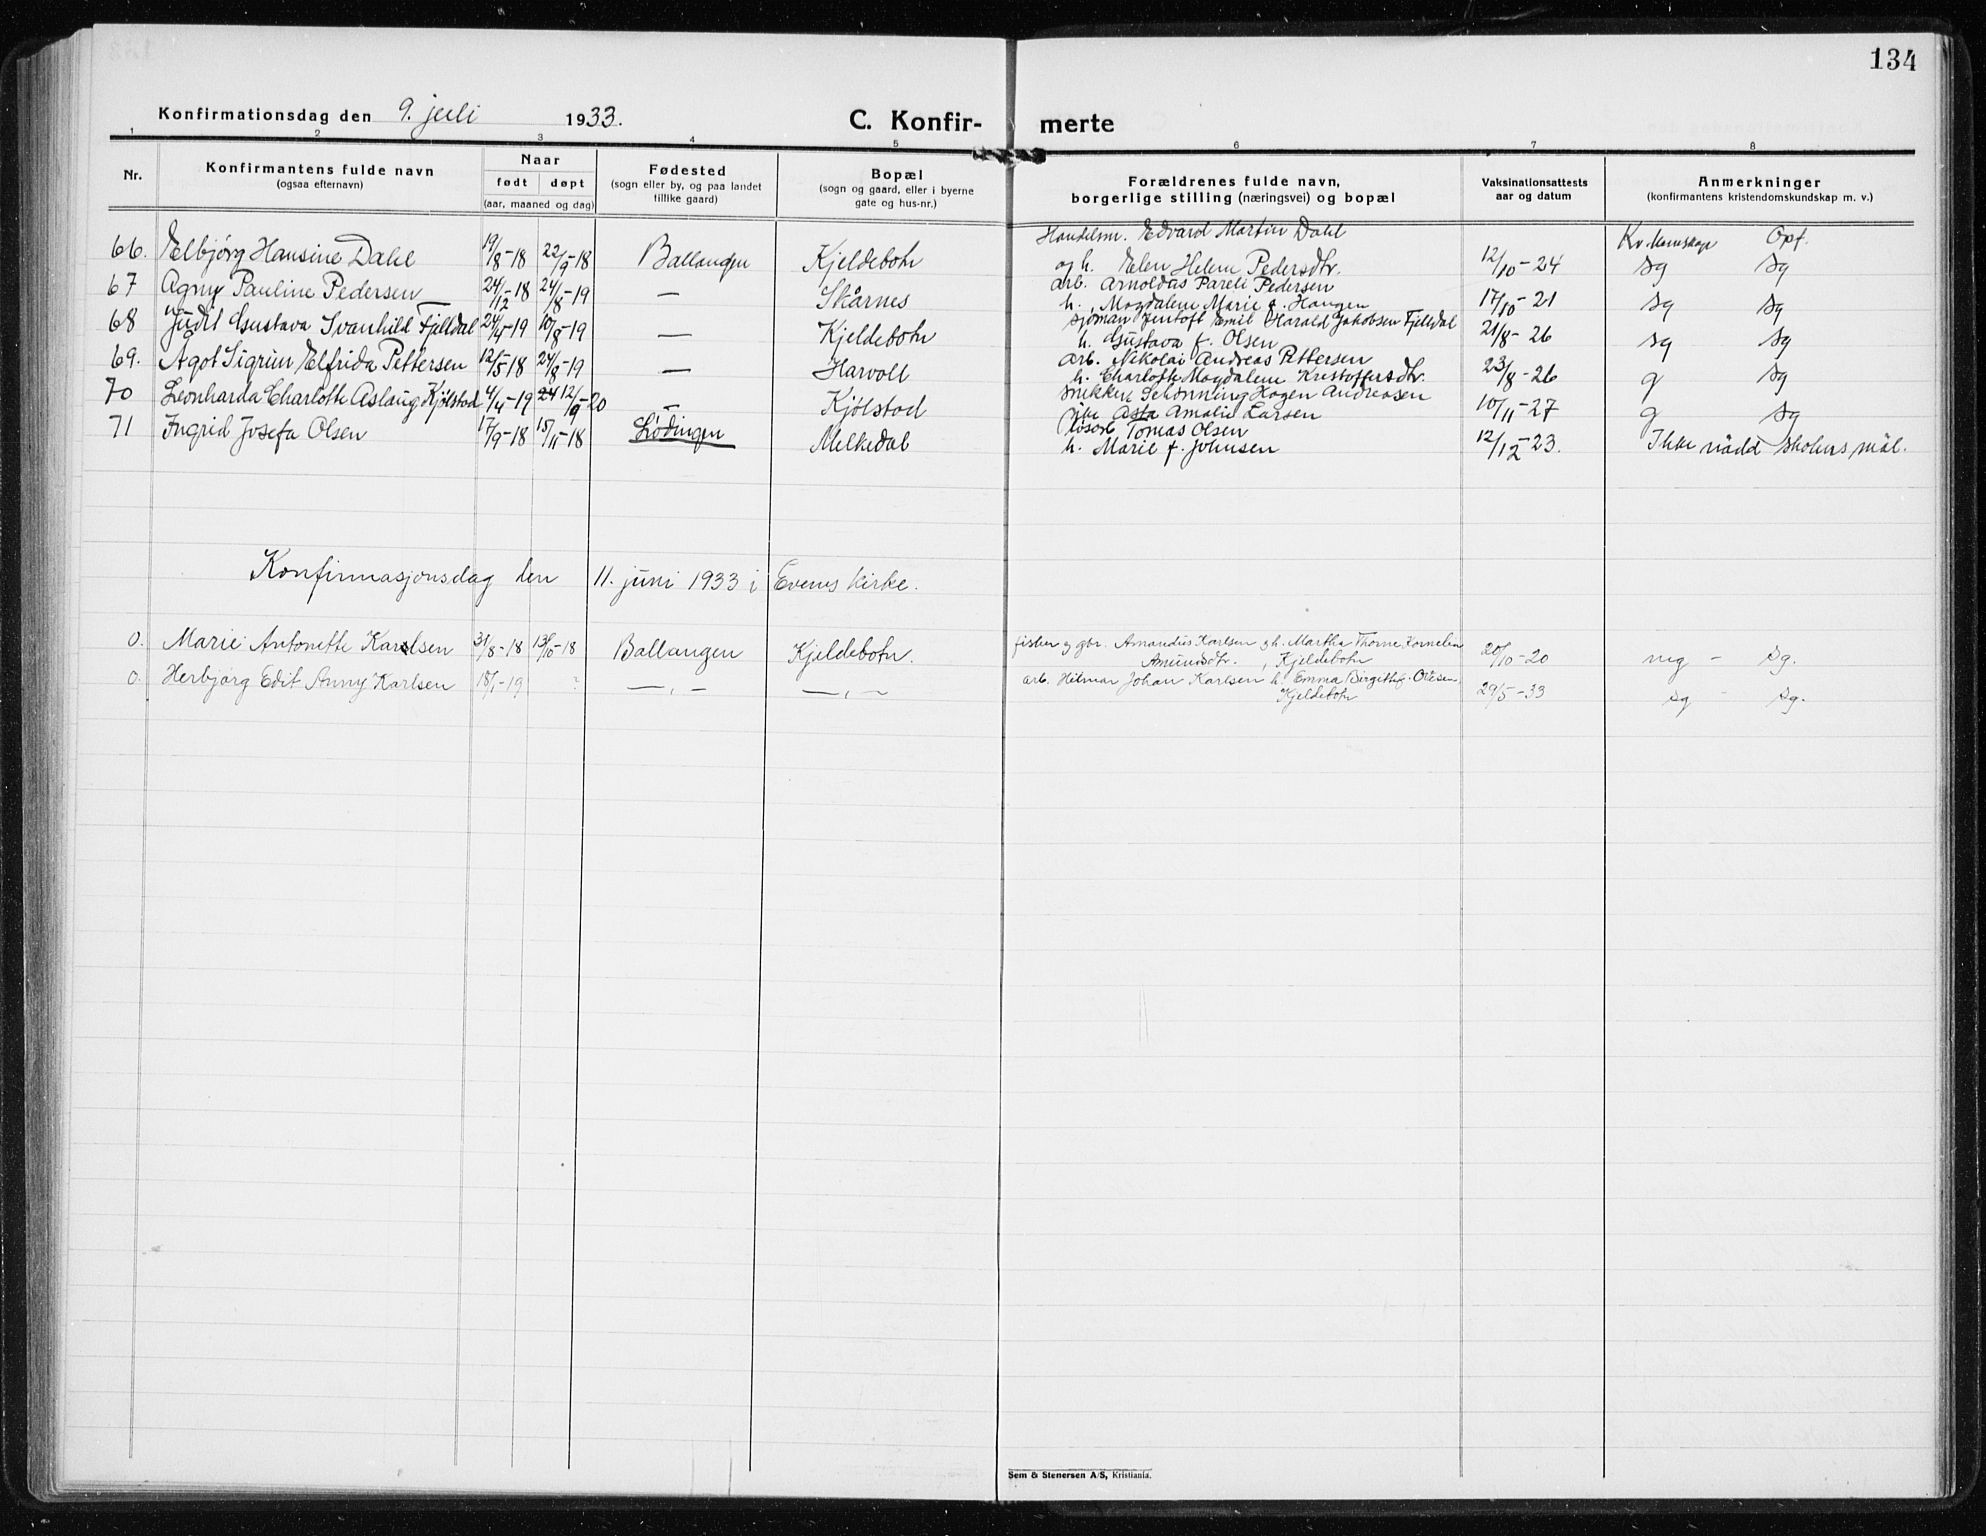 134
Konfirmationsdag den 9. juli 1933. C. Konfir- merte
1 2 3 4 5 6 7 8
Nr. Konfirmantens fulde navn (ogsaa efternavn) Naar født døpt (aar, maaned og dag) Fødested (sogn eller by, og paa landet tillike gaard) Bopæl (sogn og gaard, eller i byerne gate og hus-nr.) Forældrenes fulde navn, borgerlige stilling (næringsvei) og bopæl Vaksinationsattests aar og datum Anmerkninger (konfirmantens kristendomskundskap m. v.)
Kr. kunnskap Opf.
66. Elbjørg Hansine Dahl 19/8-18 22/9-18 Ballangen Kjeldebotn Handelsm. Edvard Martin Dahl
og h. Elen Helene Pedersdtr. 12/10-24 sg sg
67 Agny Pauline Pedersen 24/12-18 24/8-19 — Skårnes arb. Arnoldus Pareli Pedersen
h. Magdalene Marie f. Haugen 17/10-21 sg sg
68 Judit Gustava Svanhild Fjelldal 24/4-19 10/8-19 — Kjeldebotn sjøman Jentoft Emil Harald Jakobsen Fjelldal
h. Gustava f. Olsen 21/8-26 sg sg
69. Agot Sigrun Elfrida Pettersen 12/5-18 24/8-19 — Harvoll arb. Nikolai Andreas Pettersen
h. Charlotte Magdalene Kristoffersdtr. 23/8-26 g sg
70 Leonharda Charlotte Aslaug Kjølstad 4/4-19 24 12/9-20 — Kjølstad snikker Schønning Hagen Andreasen
Asta Amalie Larsen 10/11-27 g sg
71 Ingrid Josefa Olsen 17/9-18 15/11-18 Lødingen Melkedal Tomas Olsen
h. Marie f. Johnsen 12/12-23. Ikke nådd skolens mål.
Konfirmasjonsdag den 11. juni 1933 i Evenes kirke.
0. Marie Antonette Karlsen 31/8-18 13/10-18 Ballangen Kjeldebotn. fisker og gbr. Amandus Karlsen og h. Martha Thorne Kornelia
Amundsdtr., Kjeldebotn 20/10-20 mg - sg.
0. Herbjørg Edit Anny Karlsen 18/1-19 ? —„— —„— arb. Hilmar Johan Karlsen h. Emma Birgitte f. Olsen,
Kjeldebotn 29/5-33 sg - sg.
Sem & Stenersen A/S, Kristiania.